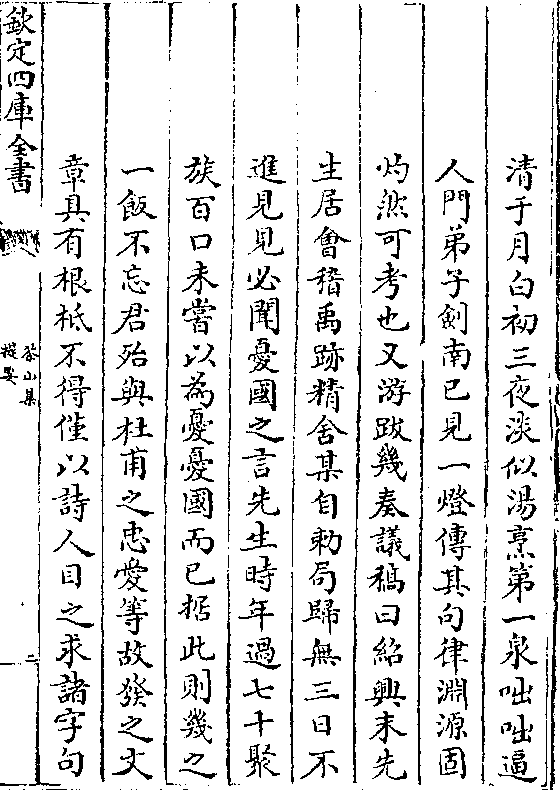 清于月白初三夜淡似湯烹第一泉咄咄逼
人門弟子劍南已見一燈傳其句律淵源固
灼然可考也又游跋幾奏議稿曰紹興末先
生居會稽禹跡精舍某自勅局歸無三日不
進見見必聞憂國之言先生時年過七十聚
族百口未嘗以為憂憂國而已㨿此則幾之
一飯不忘君殆與杜甫之忠愛等故發之文
章具有根柢不得僅以詩人目之求諸字句
欽定四庫全書
茶山集
提要
二